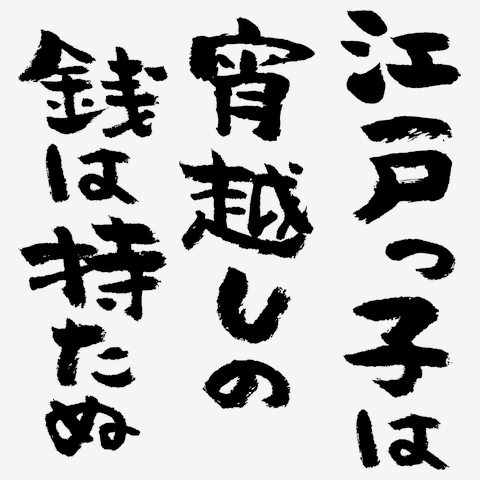 江戸っ子は
宵越しの
銭は持たぬ